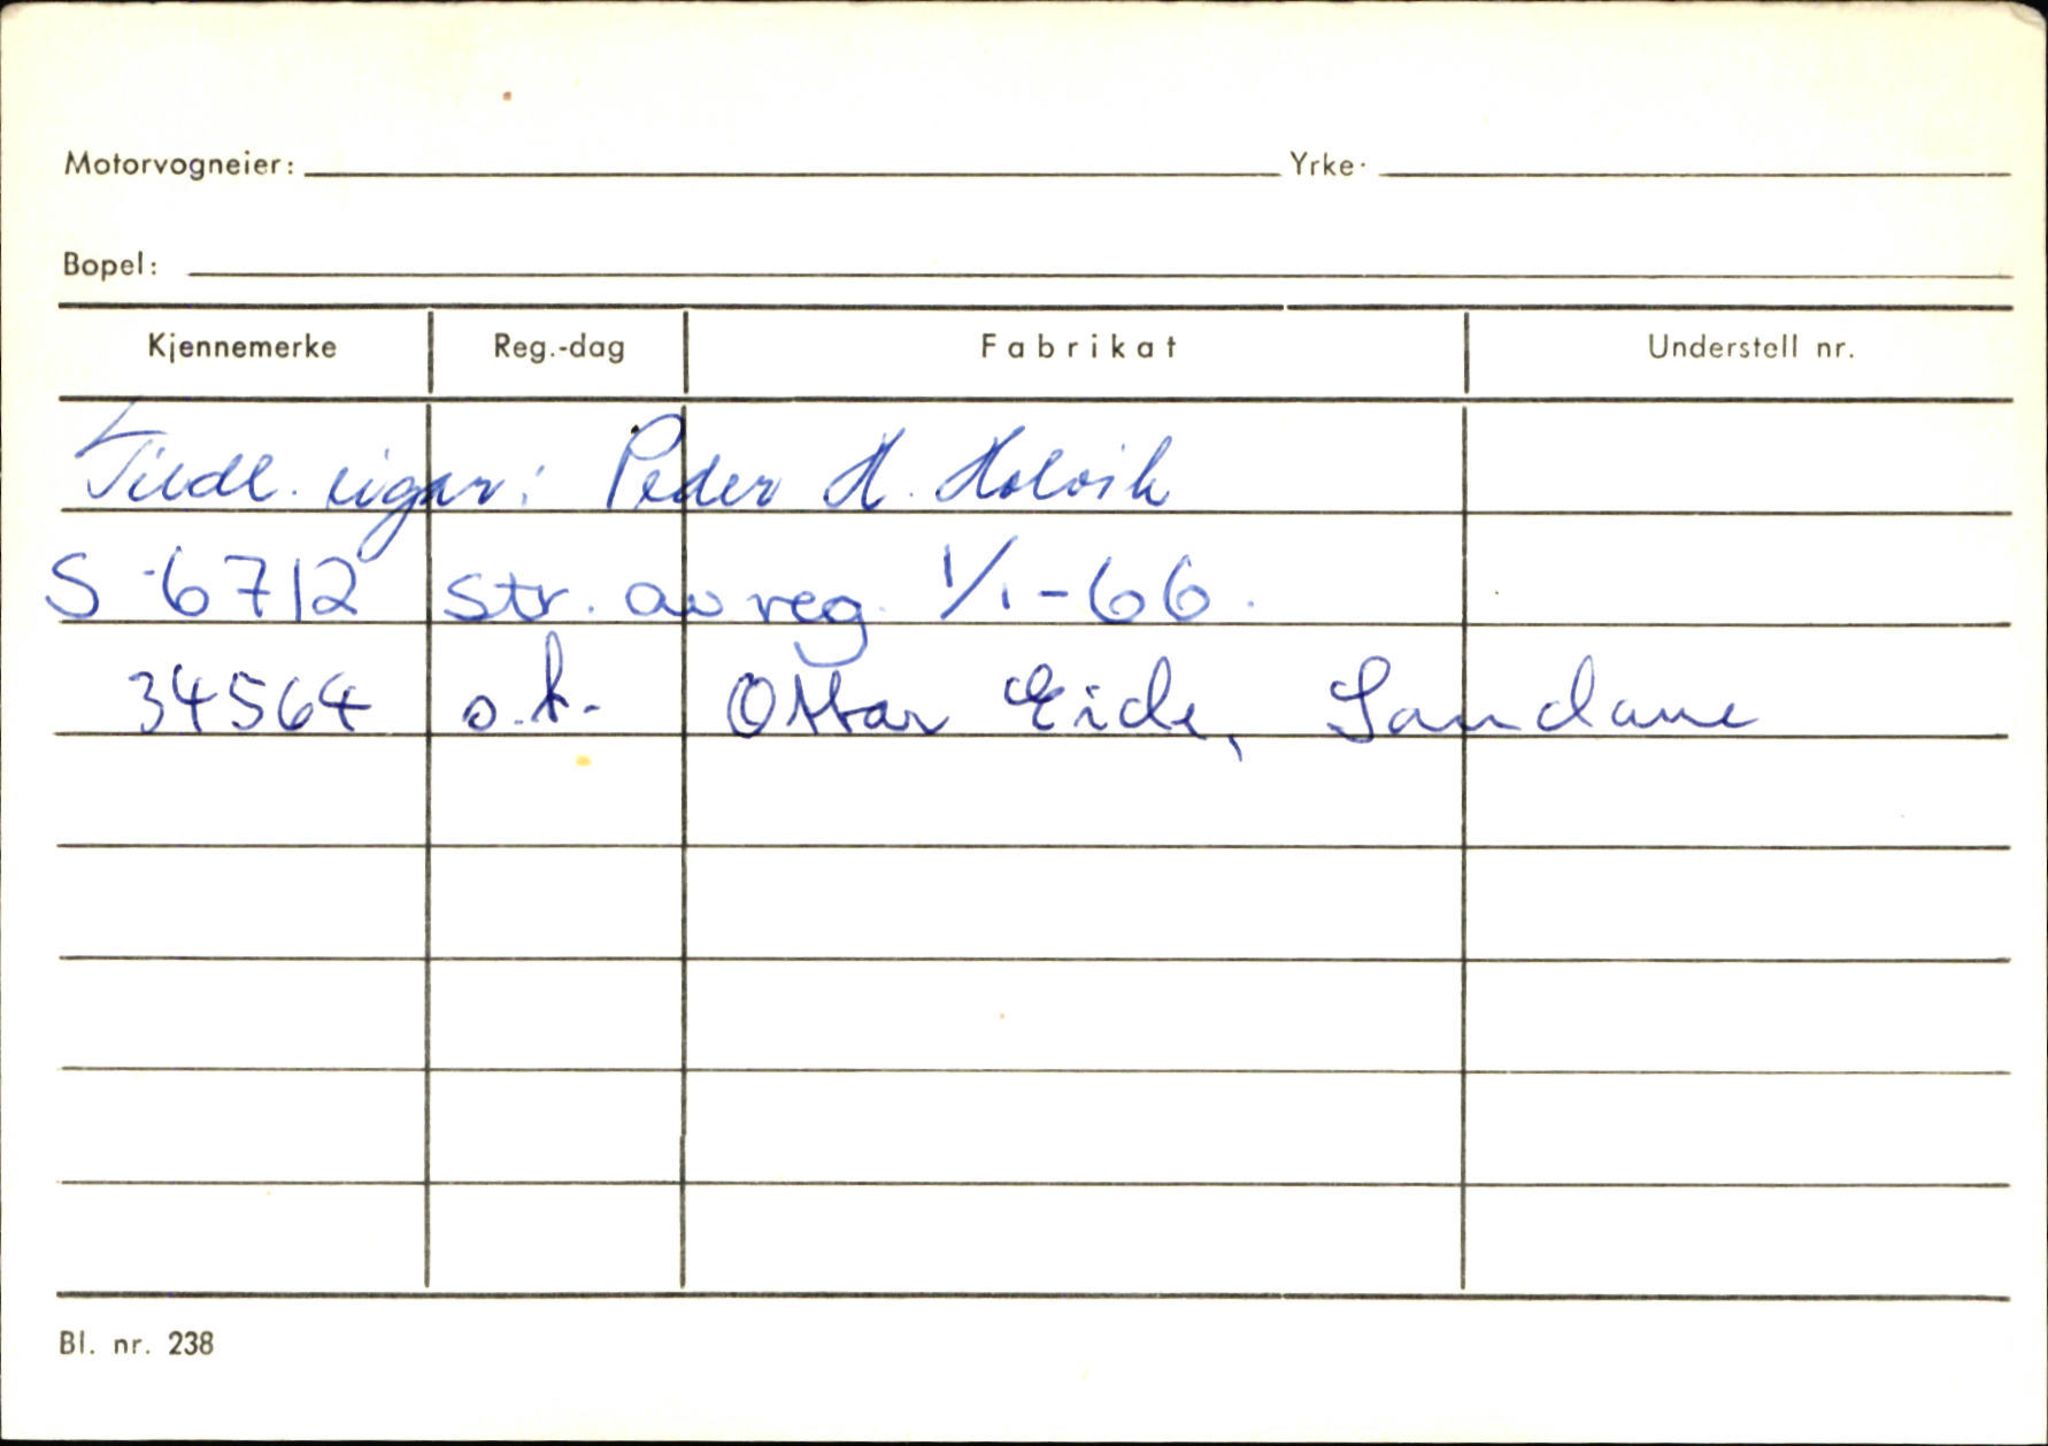 Motorvogneier: Yrke:
Bopel:
Kjennemerke Reg.-dag Fabrikat Understell nr.
Tidl. eigar: Peder H. Holvik
S-6712 str. av reg. 1/1-66.
34564 o.k. Ottar Eide, Sandane
Bl. nr. 238